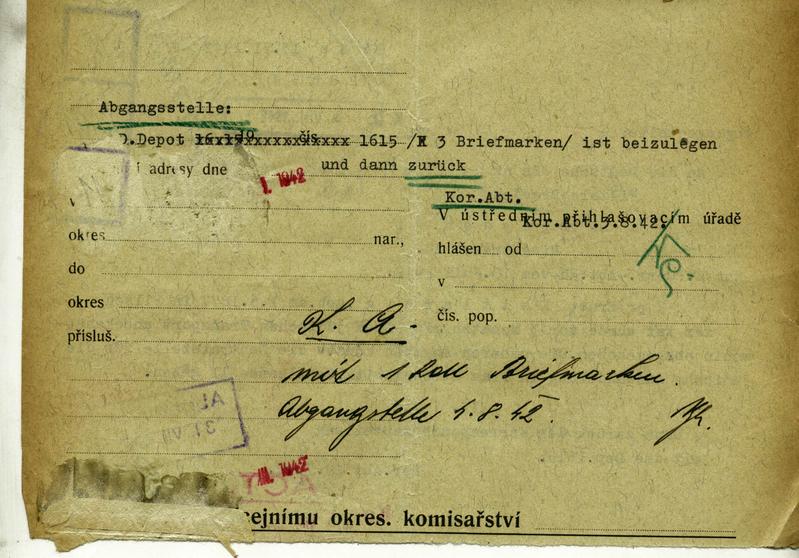 Abgangsstelle:
D.Depot 1615 / 3 Briefmarken/ ist beizulegen
adresy dne I. 1942 und dann zurück
Kor.Abt.
V ústředním přihlašovacím úřadě
Kor.Abt.3.8.42.
okres nar., hlášen od
do v
okres čís. pop.
K. A.
přísluš.
mit 1 Briefmarken.
Abgangstelle 4.8.42.
31 VII
III. 1942
ejnímu okres. komisařství